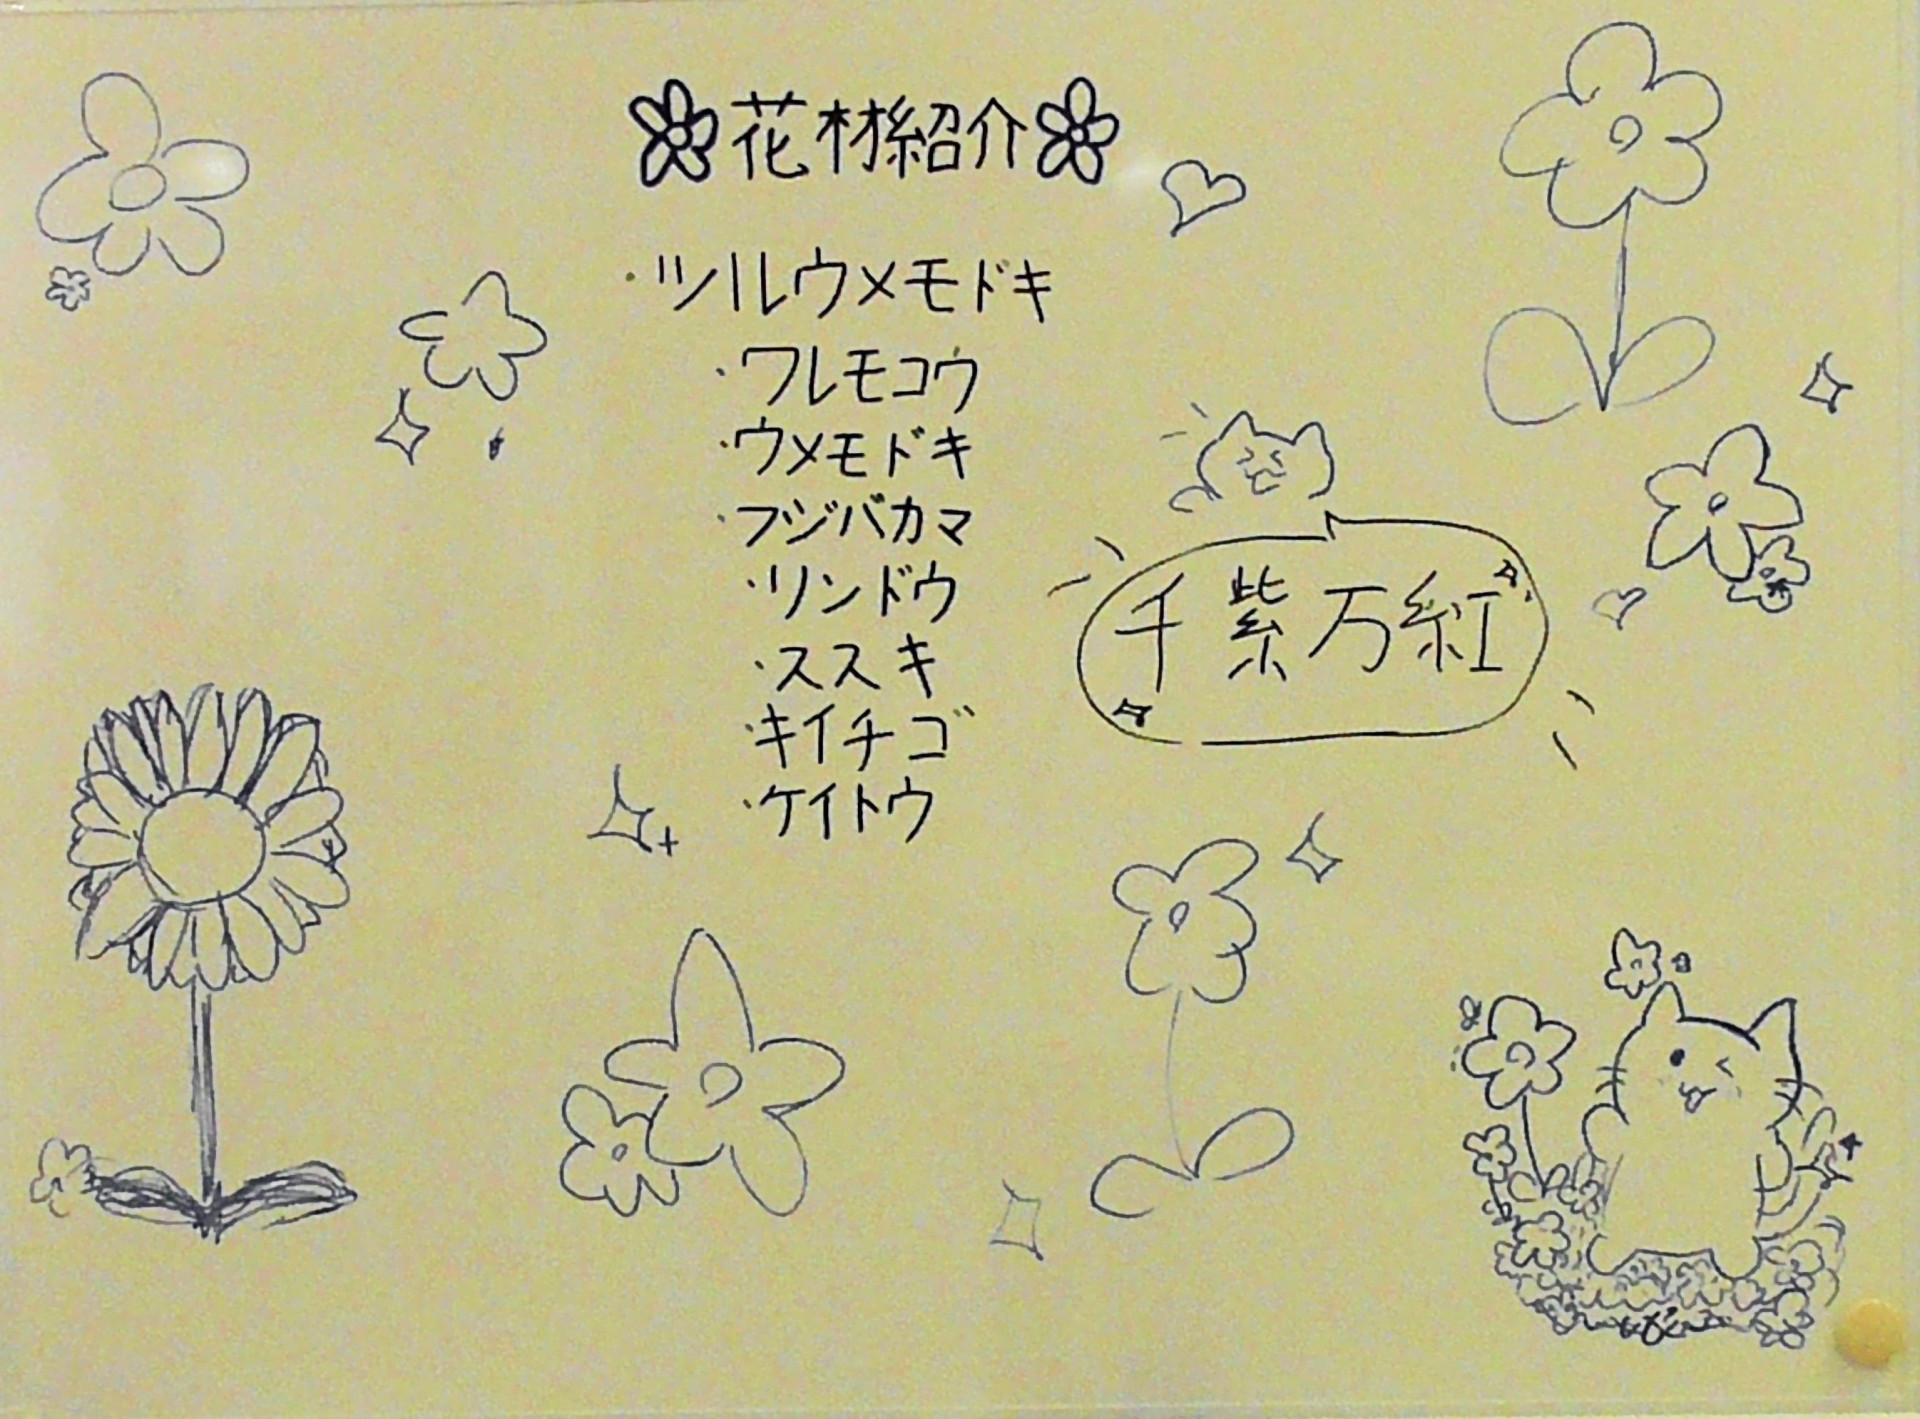 花材紹介
・ツルウメモドキ
・ワレモコウ
・ウメモドキ
・フジバカマ
・リンドウ
・ススキ
・キイチゴ
・ケイトウ
千紫万紅